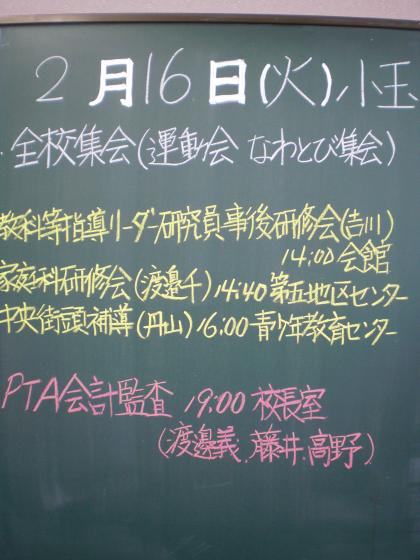 2月16日(火)小玉
全校集会(運動会 なわとび集会)
教科等指導リーダー研究員事後研修会(吉川)
14:00 会館
家庭科研修会(渡邉千)14:40 第五地区センター
中央街頭補導(丹山)16:00 青少年教育センター
PTA会計監査 19:00 校長室
(渡邉義、藤井、高野)